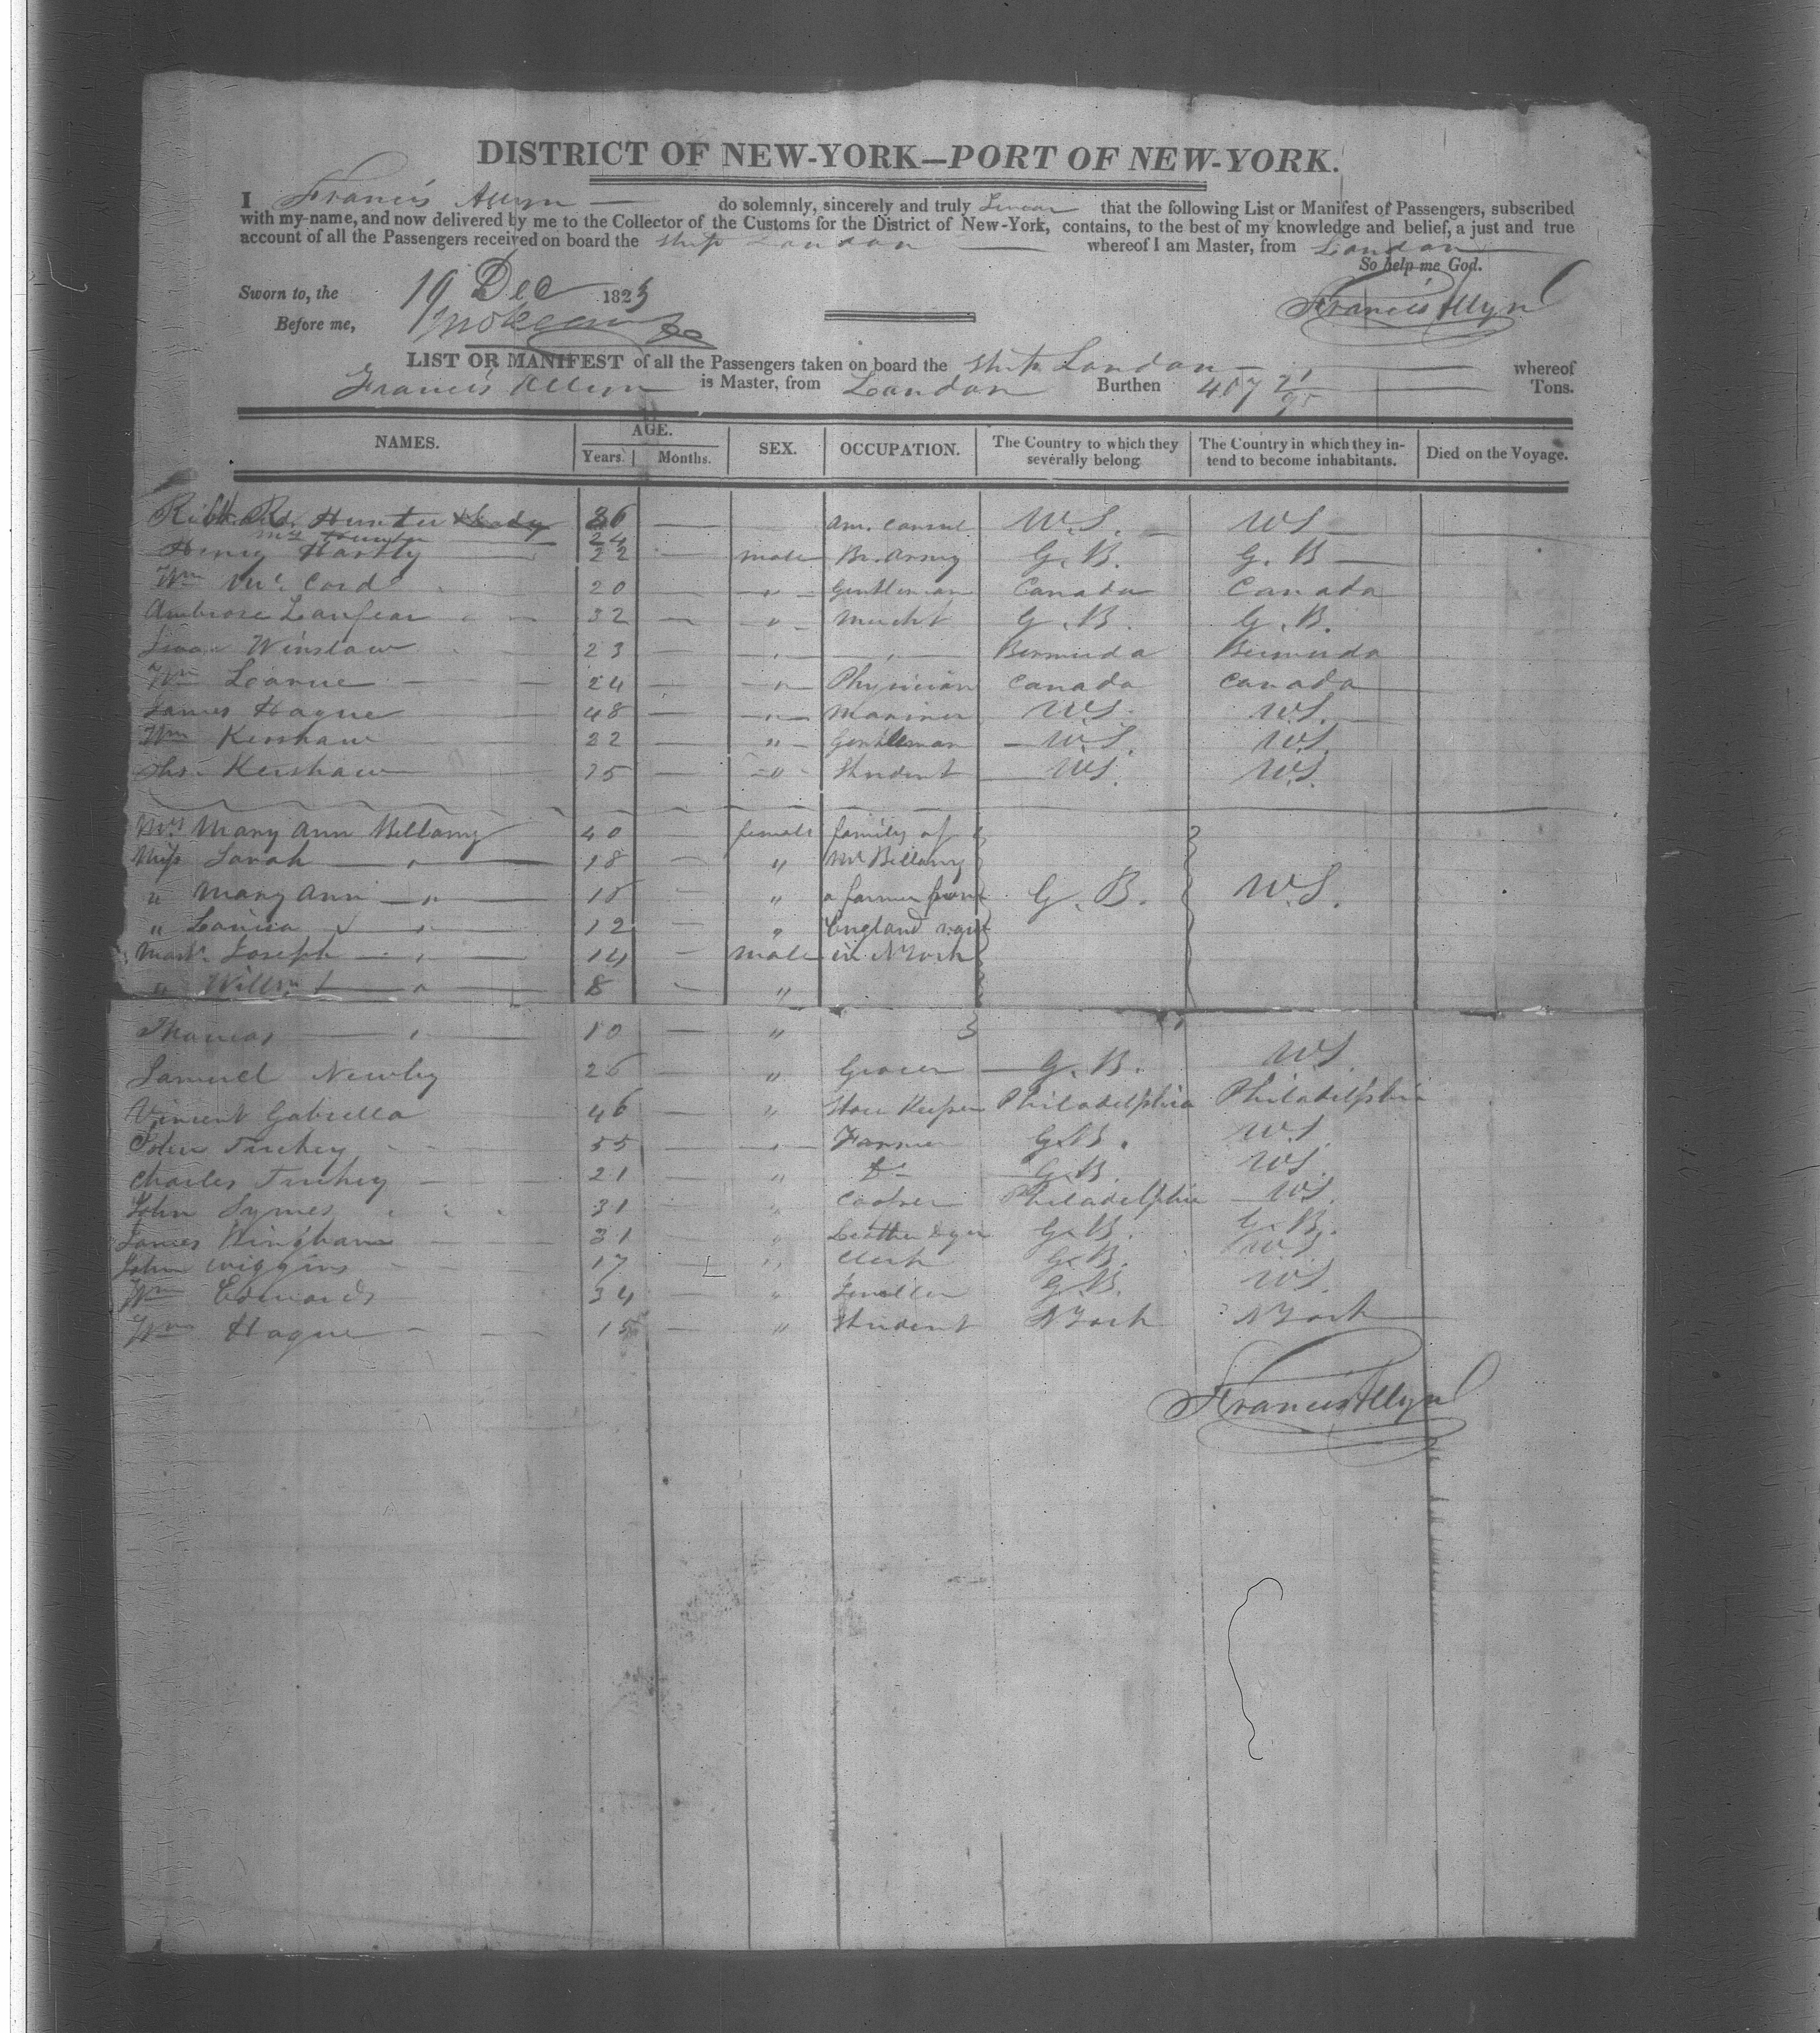 DISTRICT OF NEW-YORK—PORT OF NEW-YORK.
I Francis Allyn do solemnly, sincerely and truly Swear that the following List or Manifest of Passengers, subscribed
with my name, and now delivered by me to the Collector of the Customs for the District of New-York, contains, to the best of my knowledge and belief, a just and true
account of all the Passengers received on board the Ship London whereof I am Master, from London
So help me God.
Sworn to, the 19 Dec 1823 Francis Allyn
Before me,
LIST OR MANIFEST of all the Passengers taken on board the Ship London whereof
Francis Allyn is Master, from London Burthen 407 21/95 Tons.
NAMES. AGE. Years. Months. SEX. OCCUPATION. The Country to which they severally belong The Country in which they intend to become inhabitants. Died on the Voyage.
Hunter & Lady 36 — Am. Consul U.S. U.S.
Mrs Hunter 24
Henry Hartly 22 — male Br. Army G.B. G.B
Wm Mc Cord 20 — " Gentleman Canada Canada
Ambrose Lanfear 32 — " Mercht G.B. G.B.
Winslow 23 — " " Bermuda Bermuda
Wm 24 — " Physician Canada Canada
James Hague 48 — " Mariner U.S. U.S.
Wm Kershaw 22 " Gentleman U.S. U.S.
Ths. Kershaw 15 " Student U.S. U.S.
Mrs Mary Ann Bellamy 40 female family of
Miss Sarah " 18 — " Mr Bellamy
" Mary Ann " 15 — " a farmer from G.B. U.S.
" Louisa " 12 " England
Mastr Joseph " 14 — male in N York
" Willm " 8 — "
Thomas " 10 — "
Samuel Newby 26 — " Grocer G.B. U.S.
Vincent Gabrella 46 — " Store Keeper Philadelphia Philadelphia
John Tuchey 55 — " Farmer G.B. U.S.
Charles Tuchey 21 — " Do G.B. U.S.
John Symes 31 — " Cooper Philadelphia U.S.
James Bingham 31 — " Leather Dyer G.B. G.B.
John Wiggins 17 — " Clerk G.B. U.S.
Wm Edwards 34 — " Jeweller G.B. U.S.
Wm Hague 15 — " Student N York N York
Francis Allyn